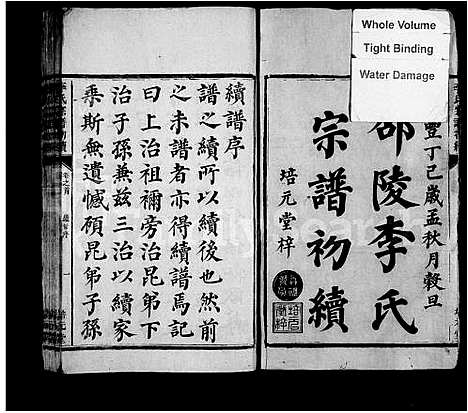 Whole Volume
Tight Binding
Water Damage
豐丁巳歲孟秋月穀旦
邵陵李氏
宗譜初續
培元堂梓
續譜序
譜之續所以續後也然前
之未譜者亦得續譜焉記
曰上治祖禰旁治昆弟下
治子孫兼茲三治以續家
乘斯無遺憾碩昆弟子孫